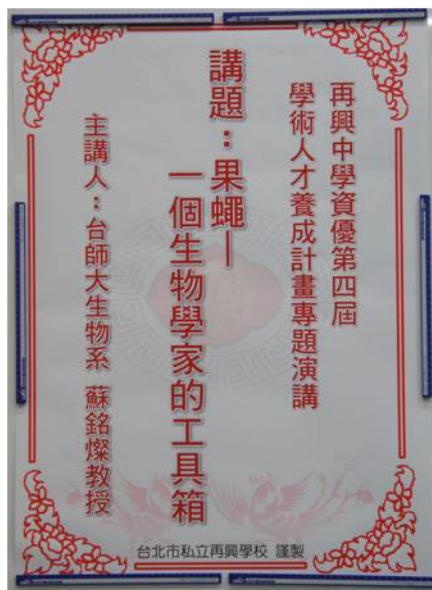 再興中學資優第四屆
學術人才養成計畫專題演講
講題：果蠅—
一個生物學家的工具箱
主講人：台師大生物系 蘇銘燦教授
台北市私立再興學校 謹製